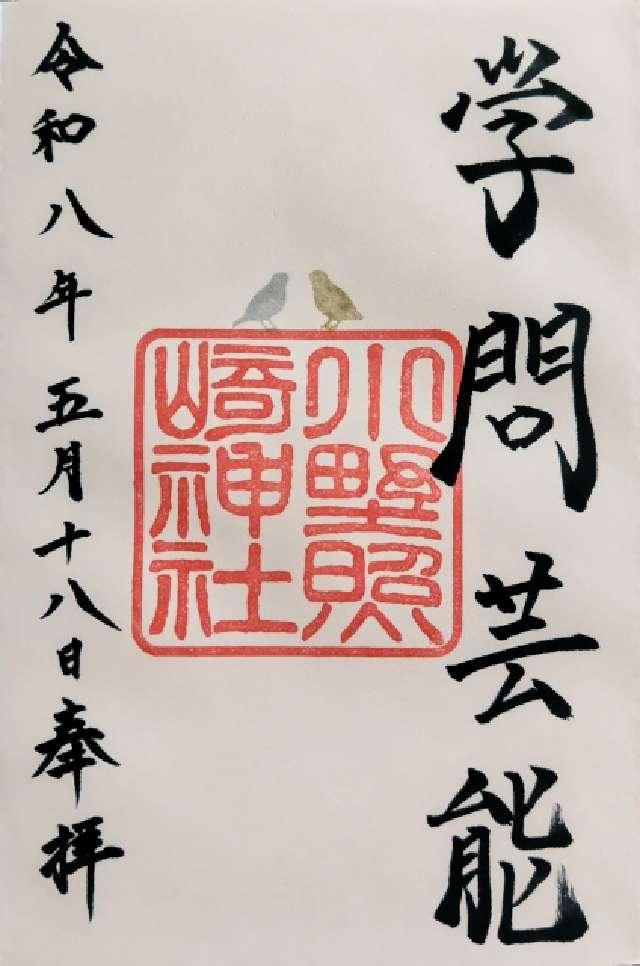 学問芸能
小野照
崎神社
令和八年五月十八日奉拝